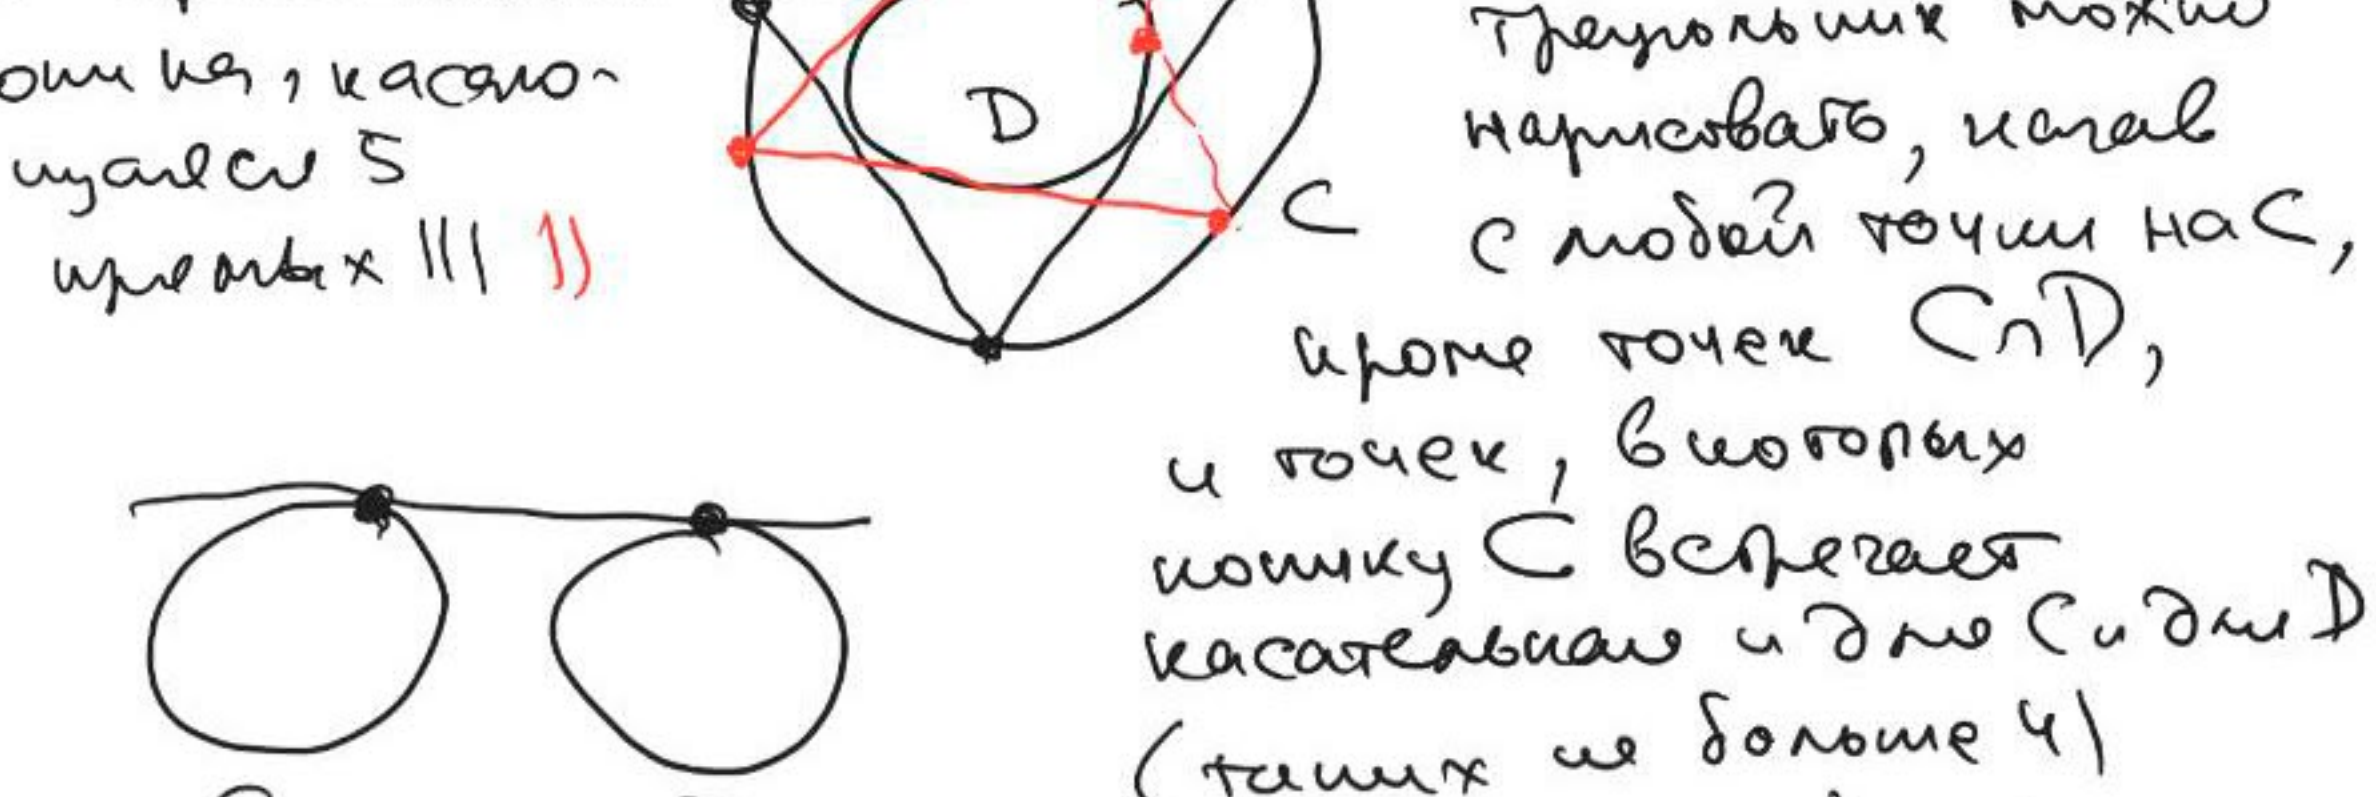 коника, касаю-
щуюся 5
прямых ||| ))
D
C
треугольник можно
нарисовать, начав
с любой точки на C,
кроме точек C∩D,
и точек, в которых
конику C встречает
касательная и для C и для D
(таких не больше 4)